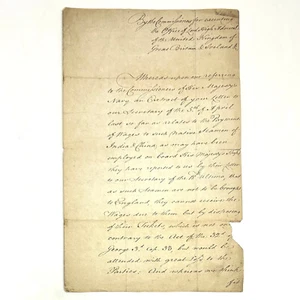 By the Commissioners for executing
the Office of Lord High Admiral
of the United Kingdom of
Great Britain & Ireland &
Whereas upon our referring
to the Commissioners of His Majesty's
Navy an Extract of your Letter to
our Secretary of the 5th of April
last so far as relates to the Payment
of Wages to such Native Seamen of
India & China, as may have been
employed on board His Majesty's Ships
they have reported to us by their Letter
to our Secretary of the
as such Seamen are not to be brought
to England, they cannot receive the
Wages due to them but by
of their Tickets, which is not only
contrary to the Act of the 32d
George 3d Cap. 33, but would be
attended with great loss to the
Parties. And whereas we think
fit